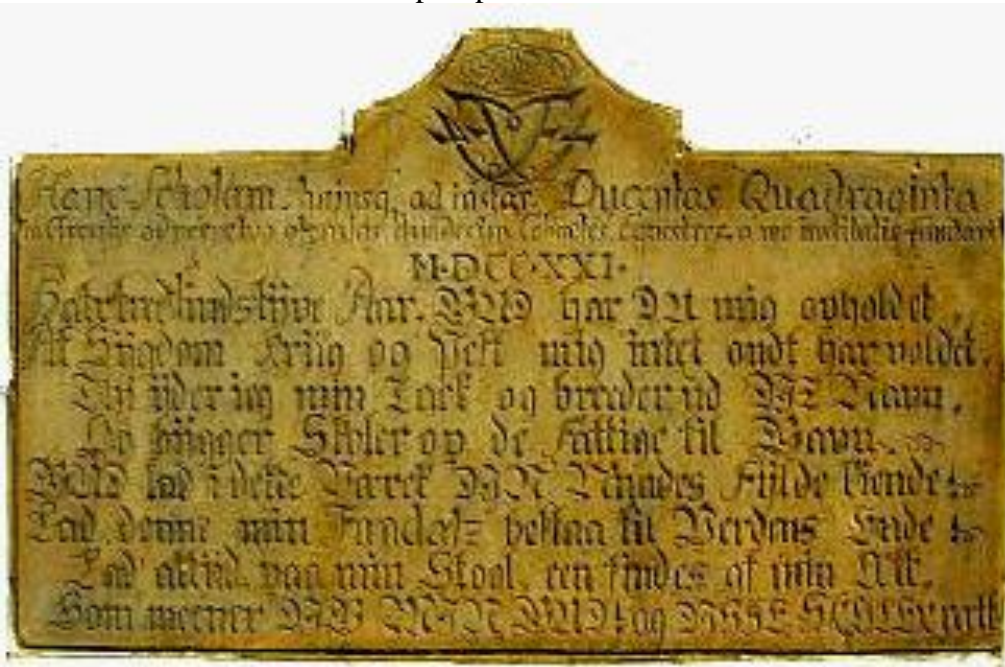 Hanc Scholam. hujusq. ad instar. Ducentas Quadraginta
M·DCC·XXI·
Halvtredsindstyve Aar. GUD har DU mig opholdet.
At Sÿgdom Kriig og Pest mig intet ondt har voldet.
Thi ÿder ieg min Tack og breeder ud DIT Navn.
Og bÿgger Skoler op de Fattige til Gavn.
GUD lad i dette Værck DIN Naades Fylde kiende
Lad denne min Fundatz bestaa til Verdens Ende
Lad altiid paa min Skool een findes af min Æt.
Som meener DIG MIN GUD og DISSE SKOLER rætt